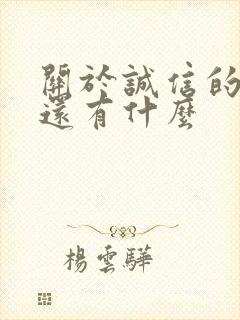 關於誠信的
還有什麼
楊雲驊